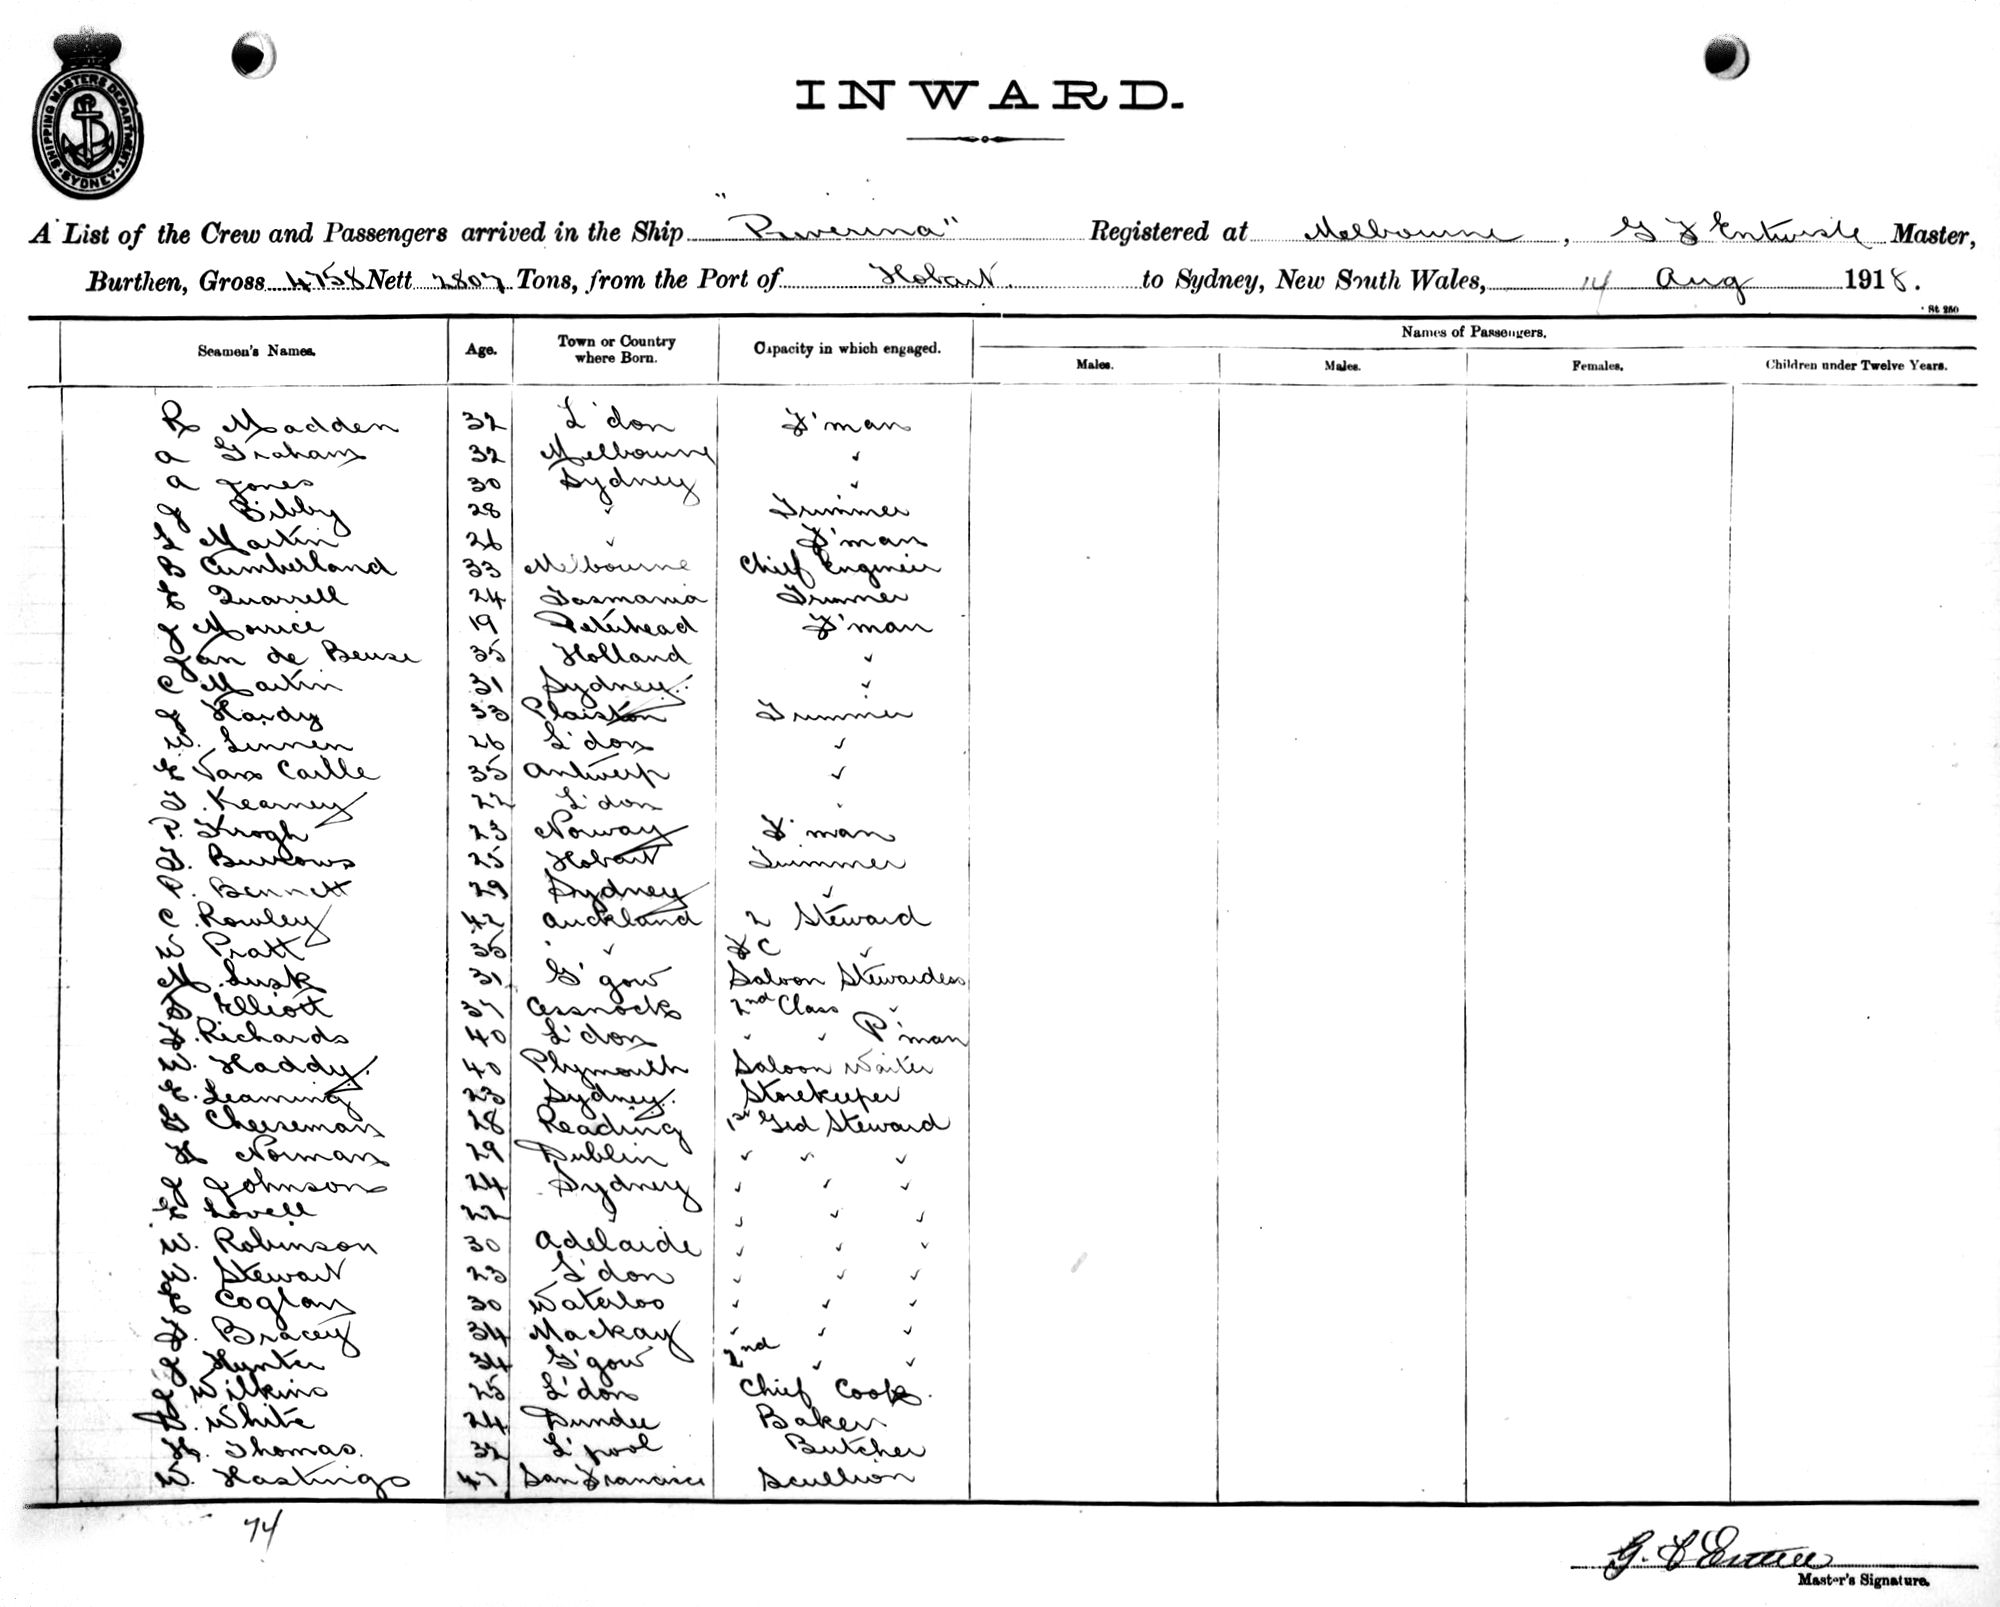 SHIPPING MASTERS DEPARTMENT
SYDNEY
INWARD.
A List of the Crew and Passengers arrived in the Ship "Riverina" Registered at Melbourne, G F Entwisle Master,
Burthen, Gross 4758 Nett 2807 Tons, from the Port of Hobart. to Sydney, New South Wales, 14 Aug 1918.
St 250
Seamen's Names. Age. Town or Country where Born. Capacity in which engaged. Names of Passengers.
Males. Males. Females. Children under Twelve Years.
R Madden 32 L'don F'man
A Graham 32 Melbourne "
A Jones 30 Sydney "
J Bibby 28 " Trimmer
L Martin 26 " F'man
B Cumberland 33 Melbourne Chief Engineer
E Quarrell 24 Tasmania Trimmer
J Morrice 19 Peterhead F'man
Jan de Beuse 35 Holland "
C Martin 31 Sydney "
J Hardy 33 Plaiston Trimmer
W. Linnen 26 L'don "
E Van Caille 35 Antwerp "
T. Kearney 22 L'don "
P. Krogh 23 Norway F'man
T. Burrows 25 Hobart Trimmer
P. Bennett 29 Sydney "
C. Rowley 42 Auckland 2 Steward
W Pratt 35 " " F C "
M. Lusk 31 G'gow Saloon Stewardess
S. Elliott 37 Cessnock 2nd Class "
F. Richards 40 L'don " " P'man
W. Haddy. 40 Plymouth Saloon Waiter
E. Leaming 23 Sydney. Storekeeper
G Cheeseman 28 Reading 1st Grd Steward
H Norman 29 Dublin " " "
J Johnson 24 Sydney " " "
E Lovell 22 " " " "
W. Robinson 30 Adelaide " " "
W. Stewart 23 L'don " " "
E Coglan 30 Waterloo " " "
F. Bracey 34 Mackay " " "
J Hynter 34 G'gow 2nd " "
J Wilkins 25 L'don Chief Cook.
D. White 24 Dundee Baker
H. Thomas. 32 L'pool Butcher
W. Hastings 47 San Francisco Scullion
74
Master's Signature.